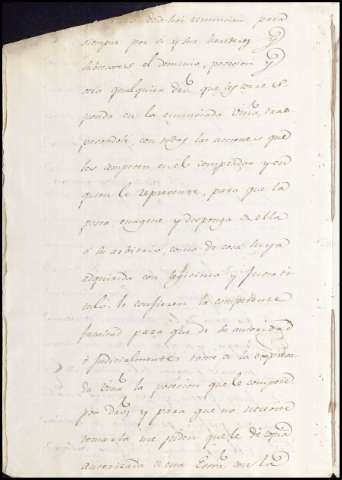 desde hoi renuncian para
siempre por si y sus herederos y
subcesores el dominio, posesion y
otro qualquiera dro. que les corres
ponda en la enunciada
pasandole, con todas las acciones que
les competen en el comprador y en
quien le represente, para que la
posea enagene y disponga de ella
á su arbitrio, como de cosa suya
adquirida con lexitimo y justo ti
tulo: le confieren la competente
facultad para que de su autoridad
ó judicialmente tome de la
da la posesion que le compete
por dro. y para que no necesite
tomarla me piden que le dé copia
autorizada de esta con la